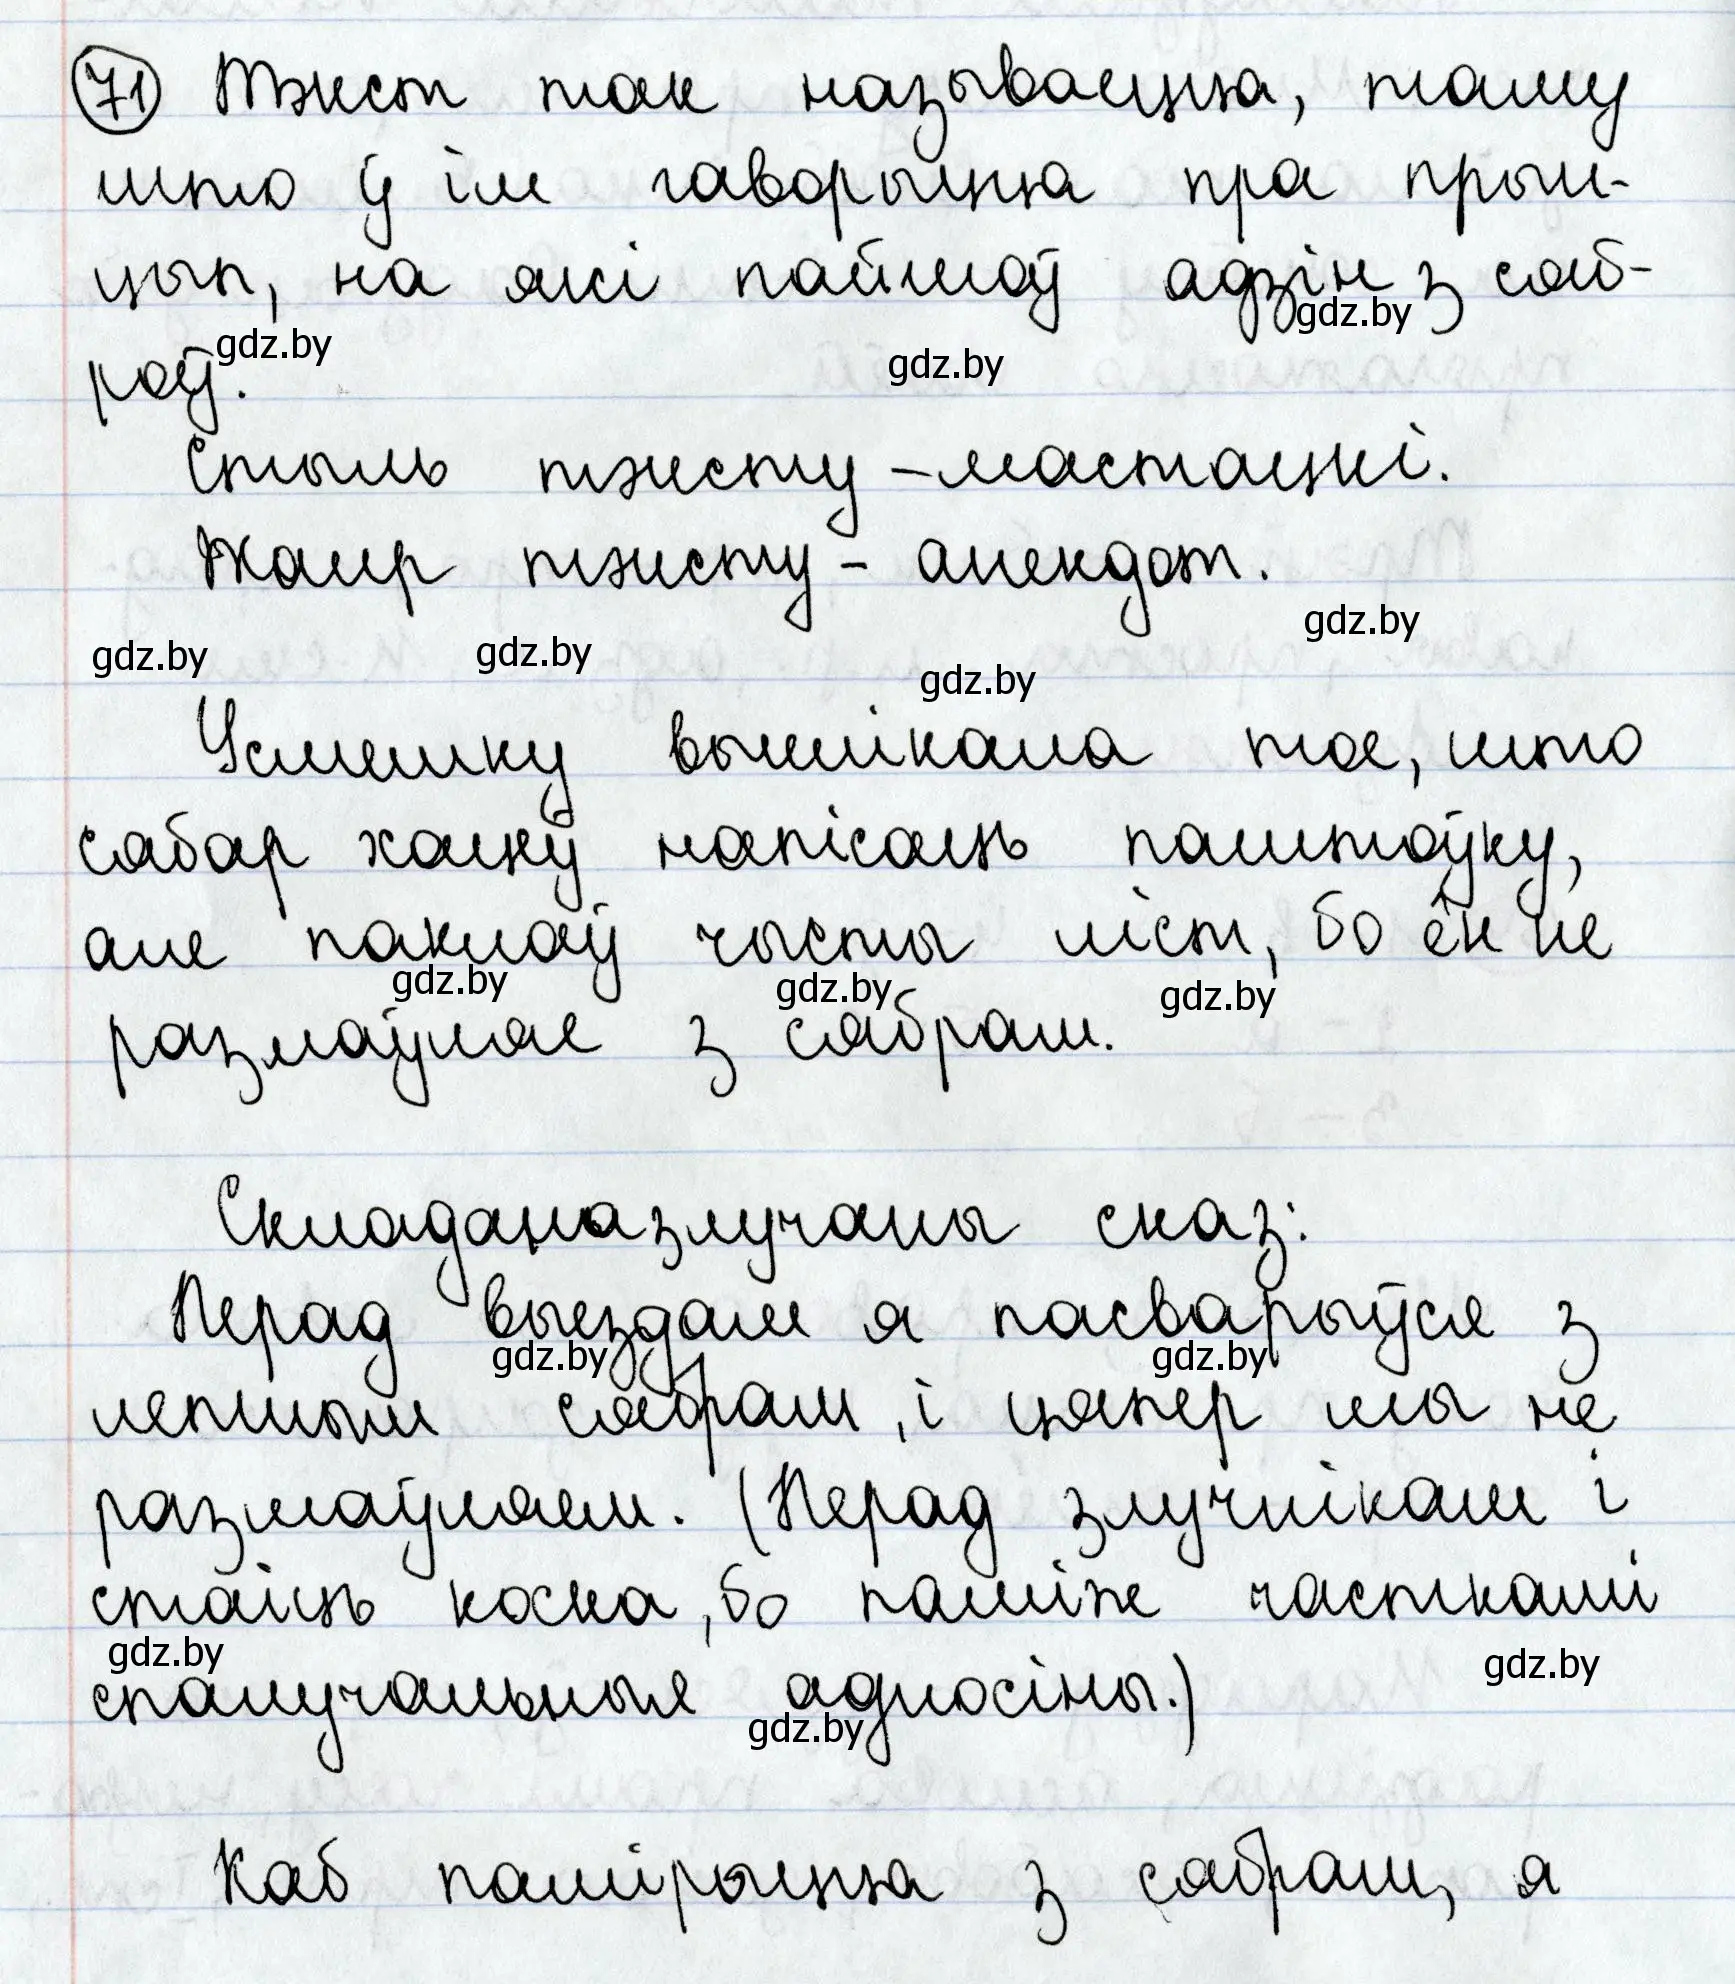 71 Тэкст так называецца, таму
што ў ім гаворыцца пра прын-
цып, на які пайшоў адзін з сяб-
роў.
gdz.by gdz.by gdz.by
Стыль тэксту – мастацкі.
Жанр тэксту – анекдот.
gdz.by gdz.by gdz.by gdz.by
Усмешку выклікала тое, што
сябар хацеў напісаць паштоўку,
але паклаў чысты ліст, бо ён не
gdz.by gdz.by gdz.by
размаўляе з сябрам.
Складаназлучаны сказ:
Перад выездам я пасварыўся з
gdz.by gdz.by
лепшым сябрам, і цяпер мы не
размаўляем. (Перад злучнікам і
стаіць коска, бо паміж часткамі
gdz.by gdz.by
спалучальныя адносіны.)
gdz.by
Каб памірыцца з сябрам, я